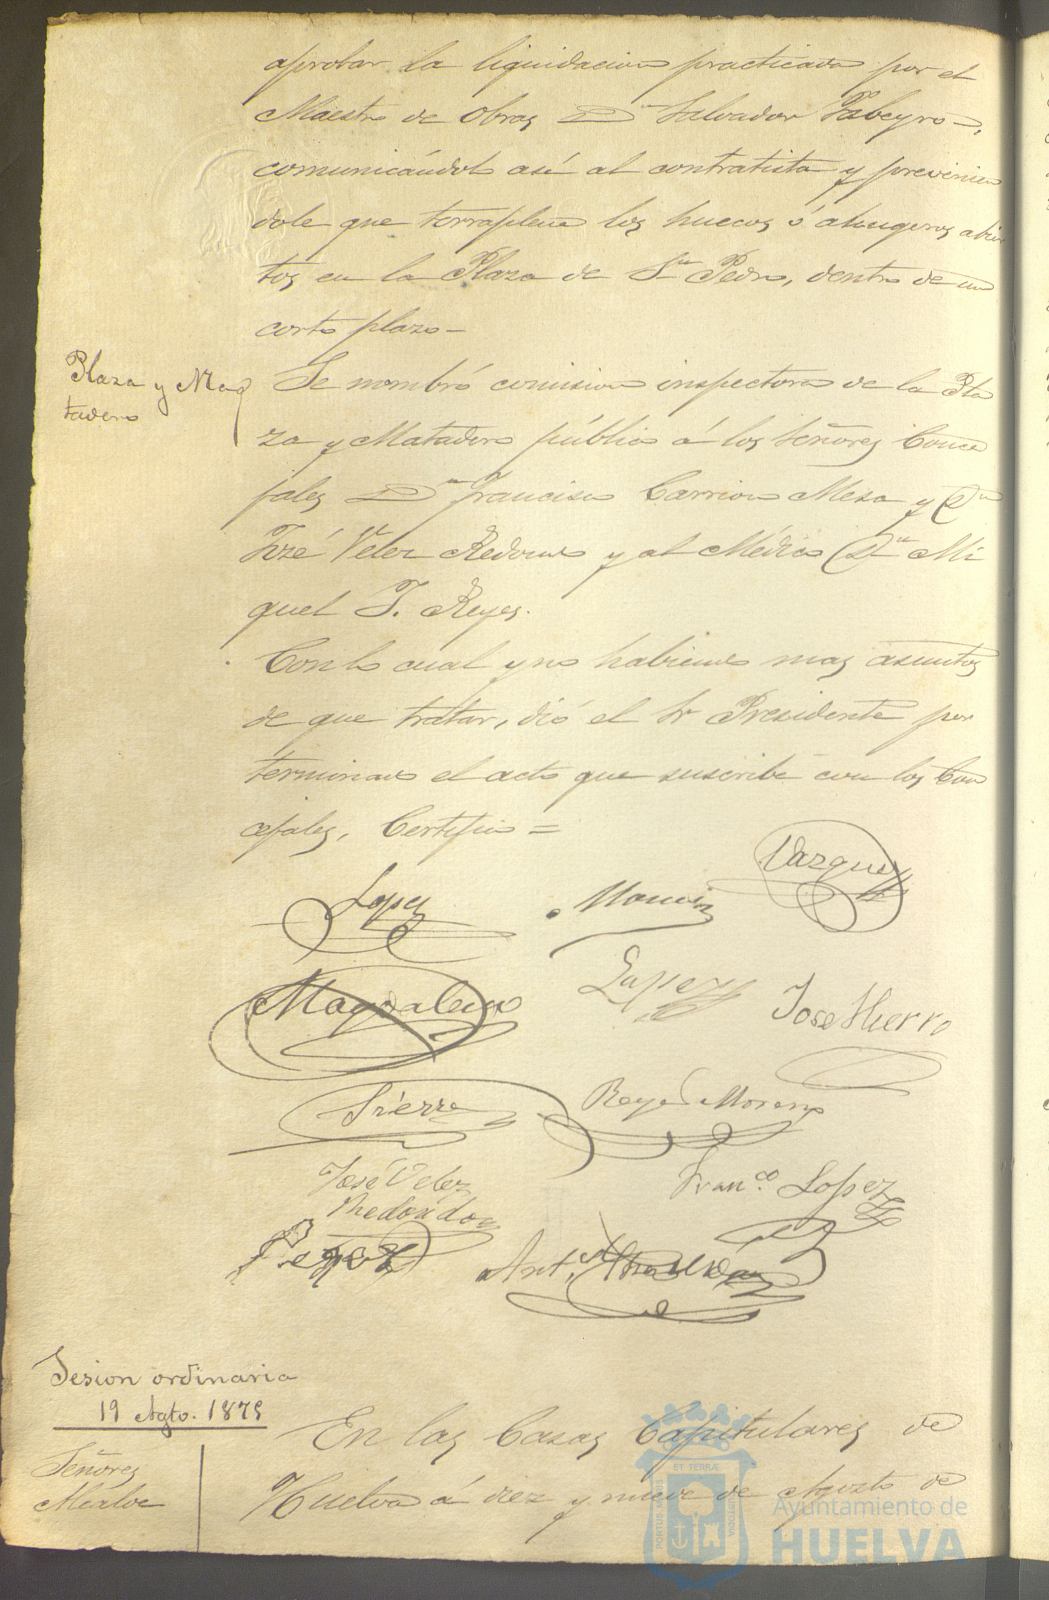 aprobar la liquidacion practicada por el
Maestro de Obras Dn Salvador
comunicándolo asi al contratista y previnien
dole que terraplene los huecos ó abugeros abier
tos en la Plaza de Sn Pedro, dentro de un
corto plazo—
Plaza y Ma
tadero
Se nombró comision inspectora de la Pla
za y Matadero público á los Señores Conce
jales Dn Francisco Carrion Mesa y Dn
José Velez Redondo y al Médico Dn Mi
guel T. Reyes.
Con lo cual y no habiendo mas asuntos
de que tratar, dió el Sr Presidente por
terminado el acto que suscribe con los Con
cejales, Certifico=
Vazquez
Lopez
Lopez
Jose Hierro
Sierra
Reyes Moreno
José Velez
Redondo
Franco. Lopez
Anto.
Sesion ordinaria
19 Agto. 1875
Señores
Alcalde
En las Casas Capitulares de
Huelva á diez y nueve de Agosto de
ET TERRAE
PORTUS MARIS
CUSTODIA
Ayuntamiento de
HUELVA